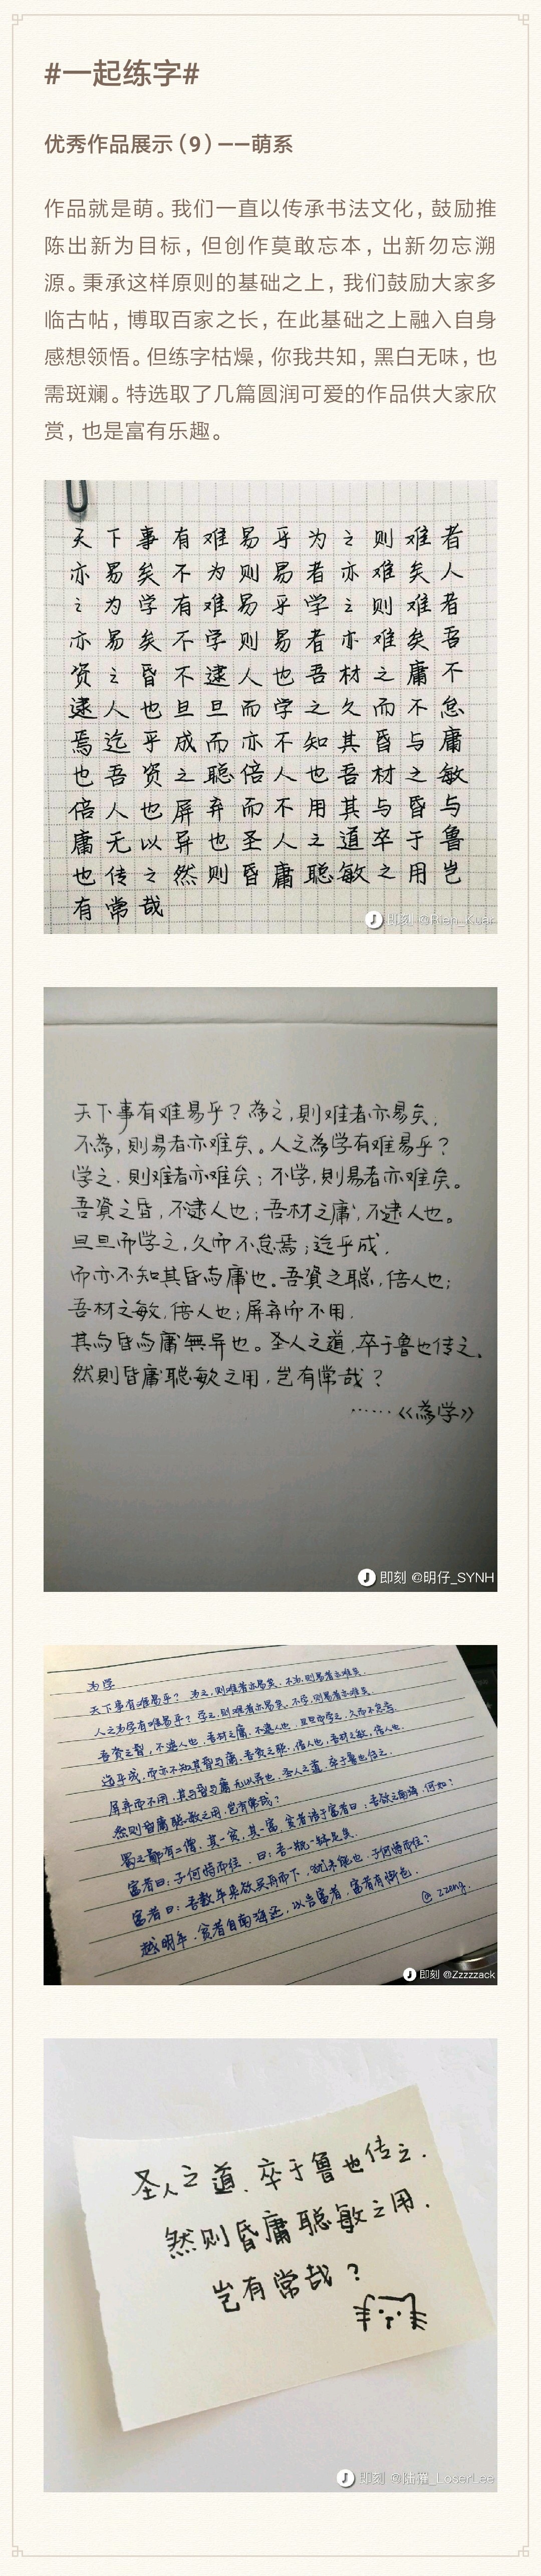 #一起练字#
优秀作品展示（9）——萌系
作品就是萌。我们一直以传承书法文化，鼓励推
陈出新为目标，但创作莫敢忘本，出新勿忘溯
源。秉承这样原则的基础之上，我们鼓励大家多
临古帖，博取百家之长，在此基础之上融入自身
感想领悟。但练字枯燥，你我共知，黑白无味，也
需斑斓。特选取了几篇圆润可爱的作品供大家欣
赏，也是富有乐趣。
天下事有难易乎为之则难者
亦易矣不为则易者亦难矣人
之为学有难易乎学之则难者
亦易矣不学则易者亦难矣吾
资之昏不逮人也吾材之庸不
逮人也旦旦而学之久而不怠
焉迄乎成而亦不知其昏与庸
也吾资之聪倍人也吾材之敏
倍人也屏弃而不用其与昏与
庸无以异也圣人之道卒于鲁
也传之然则昏庸聪敏之用岂
有常哉
即刻 @Bien_Kuan
天下事有难易乎？為之，則难者亦易矣，
不為，則易者亦难矣。人之為学有难易乎？
学之，則难者亦难矣；不学，則易者亦难矣。
吾資之昏，不逮人也；吾材之庸，不逮人也。
旦旦而学之，久而不怠焉；迄乎成，
而亦不知其昏与庸也。吾資之聪，倍人也；
吾材之敏，倍人也；屏弃而不用，
其与昏与庸無异也。圣人之道，卒于鲁也传之。
然則昏庸聪敏之用，岂有常哉？
……《為学》
即刻 @明仔_SYNH
为学
天下事有难易乎？为之，则难者亦易矣，不为，则易者亦难矣。
人之为学有难易乎？学之，则难者亦易矣，不学，则易者亦难矣。
吾资之昏，不逮人也，吾材之庸，不逮人也，旦旦而学之，久而不怠焉，
迄乎成，而亦不知其昏与庸，吾资之聪，倍人也，吾材之敏，倍人也，
屏弃而不用，其与昏与庸无以异也，圣人之道，卒于鲁也传之。
然则昏庸聪敏之用，岂有常哉？
蜀之鄙有二僧，其一贫，其一富，贫者语于富者曰：吾欲之南海，何如？
富者曰：子何恃而往，曰：吾一瓶一钵足矣。
富者曰：吾数年来欲买舟而下，犹未能也，子何恃而往？
越明年，贫者自南海还，以告富者，富者有惭色。
@ zzeng.
即刻 @Zzzzzack
圣人之道，卒于鲁也传之.
然则昏庸聪敏之用.
岂有常哉？
即刻 @陆锴_LoserLee